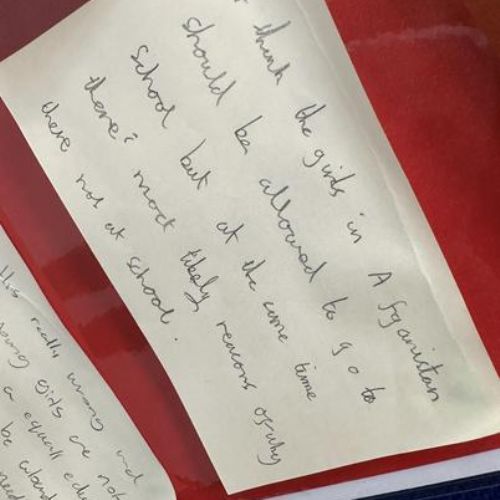 I think the girls in Afganistan
should be allowed to go to
school but at the same time
there's most likely reasons of why
there not at school.
really wrong and
young girls are not
a equall
be